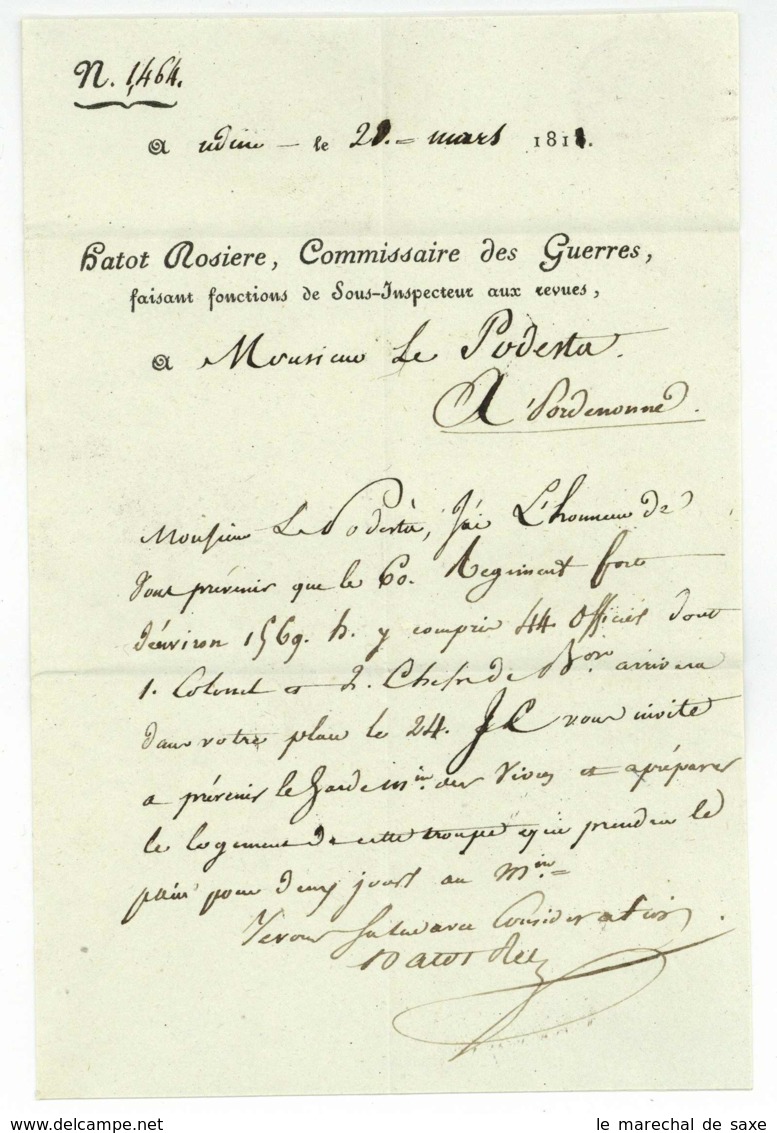 N. 1,464.
A udine - le 20. = mars 1811.
Hatot Rosiere, Commissaire des Guerres,
faisant fonctions de Sous-Inspecteur aux revues,
A Monsieur Le Podesta.
A Pordenonne.
Monsieur Le Podestà, J'ai L'honneur de
Vous prévenir que le 60. Regiment fort
d'environ 1569. h. y compris 44. Officiers dont
1. Colonel et 2. Chefs de B.on arrivera
dans votre place le 24. Je vous invite
a prévenir le Garde m.in des Vivres et apréparer
le logement de cette troupe qui prendra le
pain pour deux jours au m.in =
Je vous salue avec Consideration.
Hatot
le marechal de saxe